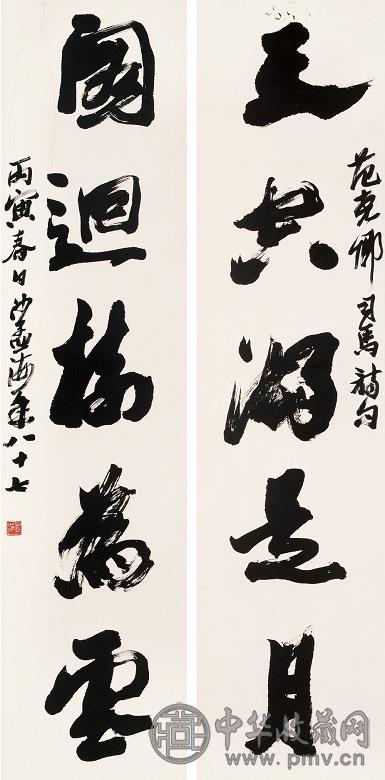 天空湖是月
范堯卿司馬詩句
閣迴樹為雲
丙寅春日沙孟海年八十七
中华收藏网
www.pmv.cn